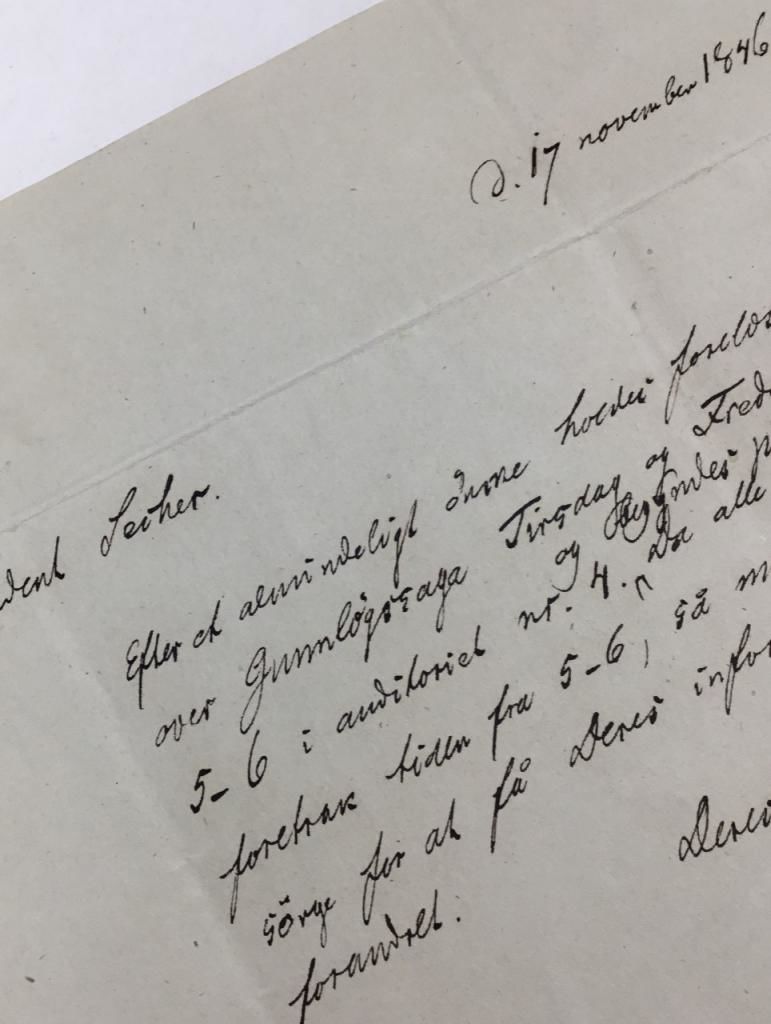 d. 17 november 1846
Leiher.
Efter et almindeligt önske holdes forelæs
over Gunnlögssaga Tirsdag og Fred
5-6 i auditoriet nr. 4. og begyndes p
Da alle
foretrak tiden fra 5-6, så m
sörge for at få Deres infor
forandret.
Deres